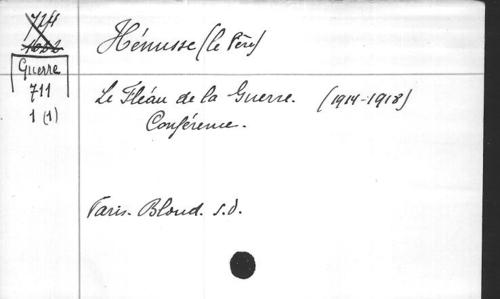 Guerre
711
1 (1)
Hénusse (le Père)
Le Fléau de la Guerre. (1914-1918)
Conférence.
Paris. Bloud. s.d.